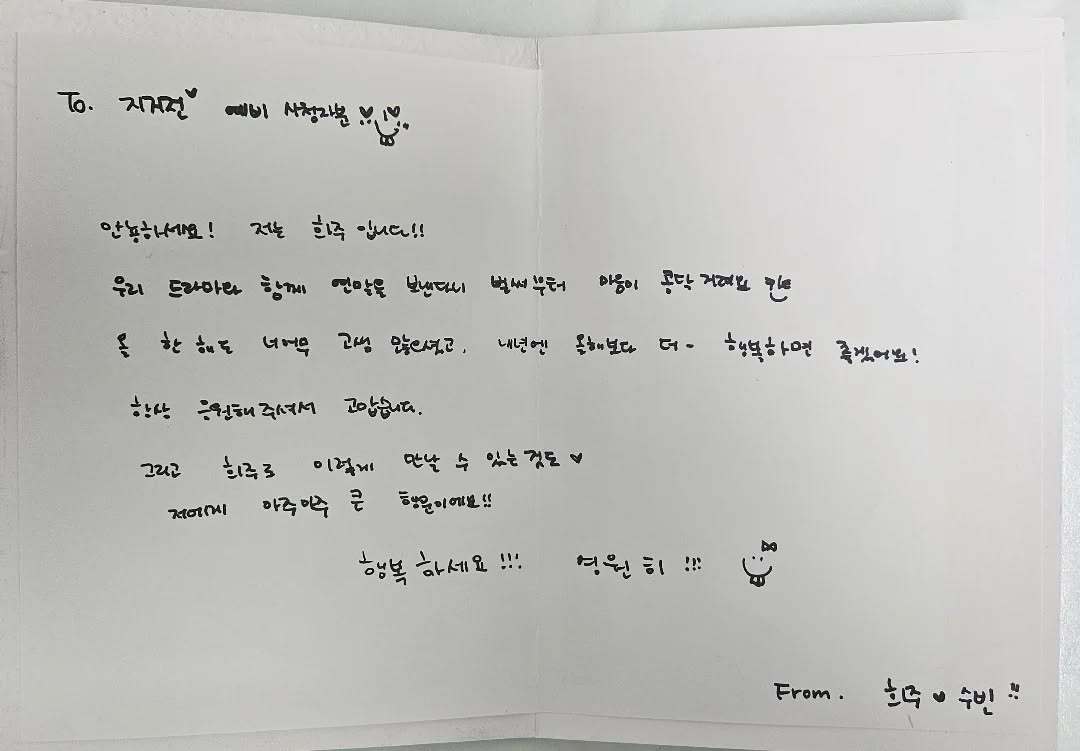 To. 지거전♥ 예비 시청자분
안뇽하세요! 저는 희주입니다!!
우리 드라마와 함께 연말을 보낸다시 벌써부터 마음이 콩닥거려요
올 한해도 너어무 고생 많으셨고, 내년엔 올해보다 더- 행복하면 좋겠어요!
항상 응원해주셔서 고맙습니다.
그리고 희주로 이렇게 만날 수 있는것도 ♥
저에게 아주아주 큰 행운이에요!!
행복하세요!!! 영원히!!!
From. 희주 ♥ 수빈 !!